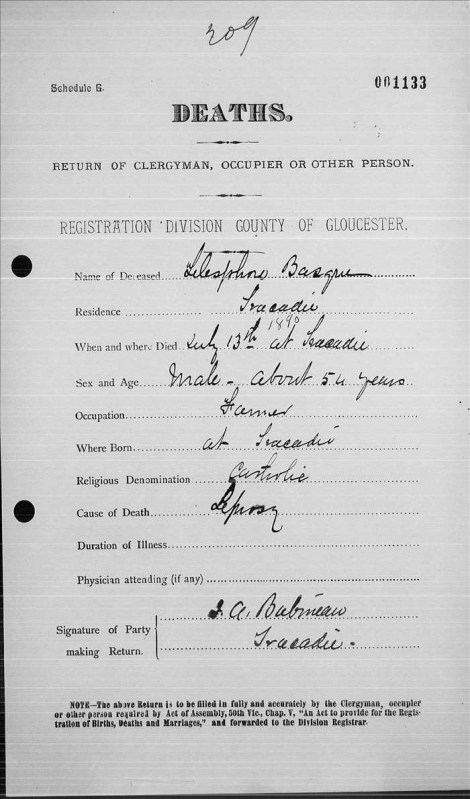 209
Schedule G. 001133
DEATHS.
RETURN OF CLERGYMAN, OCCUPIER OR OTHER PERSON.
REGISTRATION DIVISION COUNTY OF GLOUCESTER.
Name of Deceased Telesphore Basque
Residence Tracadie
1890
When and where Died July 13th at Tracadie
Sex and Age Male - about 54 years
Occupation Farmer
Where Born at Tracadie
Religious Denomination Catholic
Cause of Death Leprosy
Duration of Illness
Physician attending (if any)
J. A. Babineau
Signature of Party
making Return. Tracadie -
NOTE—The above Return is to be filled in fully and accurately by the Clergyman, occupier
or other person required by Act of Assembly, 50th Vic., Chap. V, "An Act to provide for the Regis-
tration of Births, Deaths and Marriages," and forwarded to the Division Registrar.